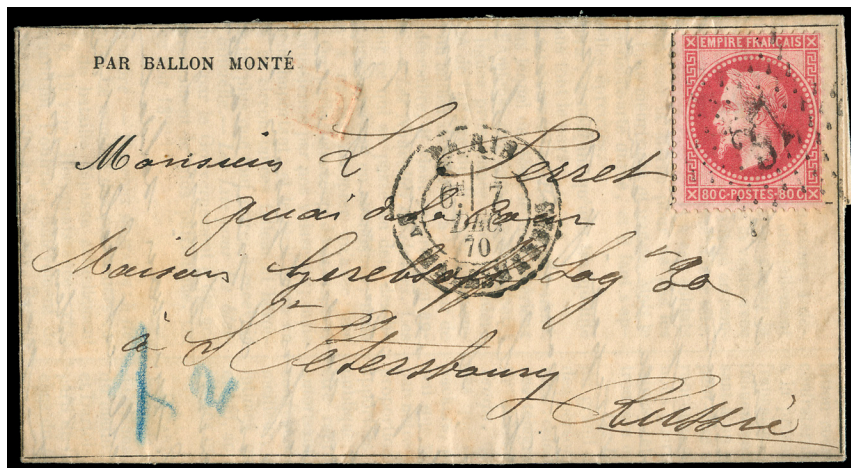 PAR BALLON MONTÉ
EMPIRE FRANÇAIS
80 C-POSTES-80 C
PARIS
6E 7
DEC
70
Monsieur L Perret
Quai de la Cour
Maison Log n 30
à St Pétersbourg
Russie
1 2